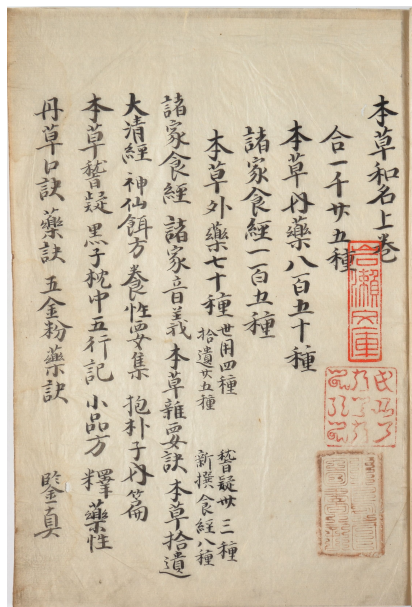 本草和名上巻
合一千廿五種
本草内藥八百五十種
諸家食經一百五種
本草外藥七十種 世用四種 拾遺廿五種 𥡴疑廿三種 新撰食經八種
諸家食經 諸家音義 本草雜要訣 本草拾遺
大清經 神仙餌方 養性要集 抱朴子内篇
本草𥡴疑 黒子枕中五行記 小品方 釋藥性
丹草口訣 藥訣 五金粉藥訣 鑒真